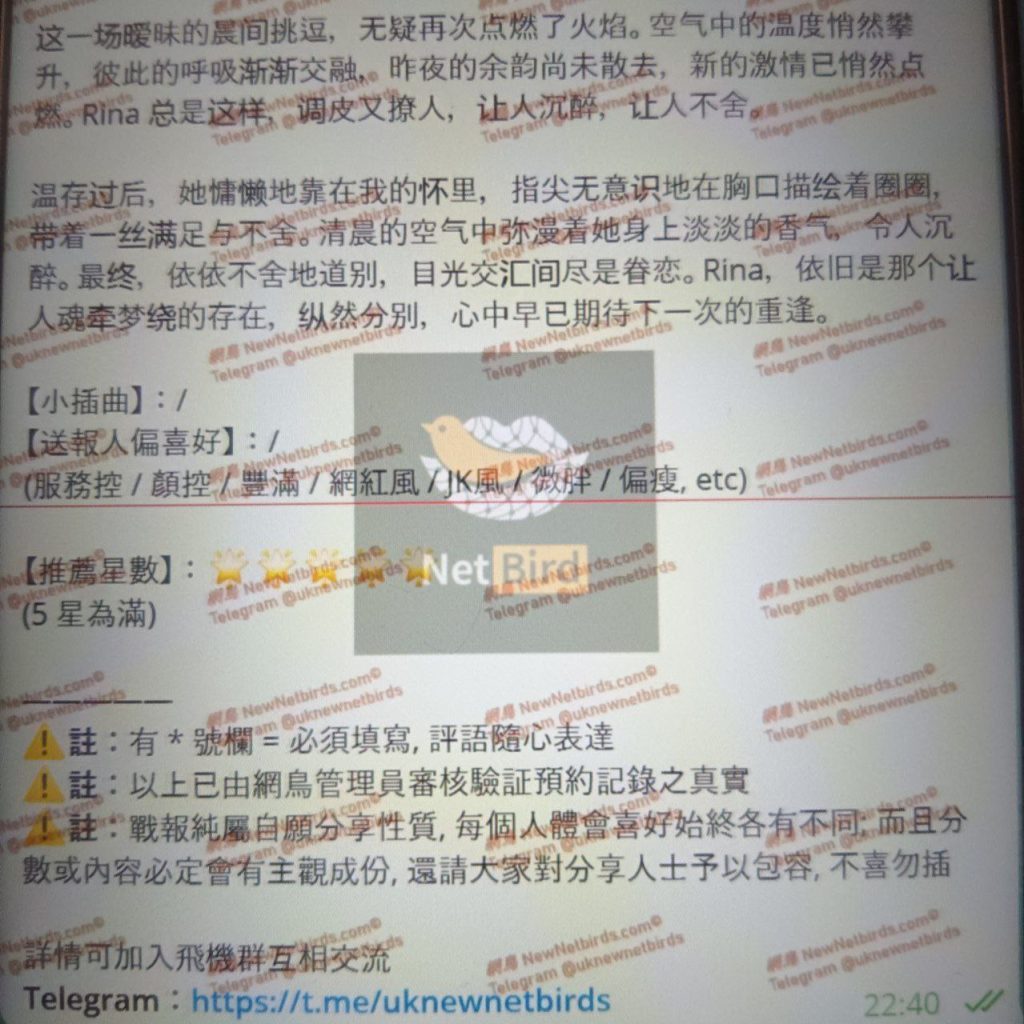 这一场暧昧的晨间挑逗，无疑再次点燃了火焰。空气中的温度悄然攀
升，彼此的呼吸渐渐交融，昨夜的余韵尚未散去，新的激情已悄然点
燃。Rina 总是这样，调皮又撩人，让人沉醉，让人不舍。
温存过后，她慵懒地靠在我的怀里，指尖无意识地在胸口描绘着圈圈，
带着一丝满足与不舍。清晨的空气中弥漫着她身上淡淡的香气，令人沉
醉。最终，依依不舍地道别，目光交汇间尽是眷恋。Rina，依旧是那个让
人魂牵梦绕的存在，纵然分别，心中早已期待下一次的重逢。
【小插曲】：/
【送報人偏喜好】：/
(服務控 / 顏控 / 豐滿 / 網紅風 / JK風 / 微胖 / 偏瘦, etc)
【推薦星數】：🌟🌟🌟🌟🌟
(5 星為滿)
NetBird
——————
⚠️註：有 * 號欄 = 必須填寫, 評語隨心表達
⚠️註：以上已由網鳥管理員審核驗証預約記錄之真實
⚠️註：戰報純屬自願分享性質, 每個人體會喜好始終各有不同; 而且分
數或內容必定會有主觀成份, 還請大家對分享人士予以包容, 不喜勿插
詳情可加入飛機群互相交流
Telegram：https://t.me/uknewnetbirds
22:40
網鳥 NewNetbirds.com©
Telegram @uknewnetbirds